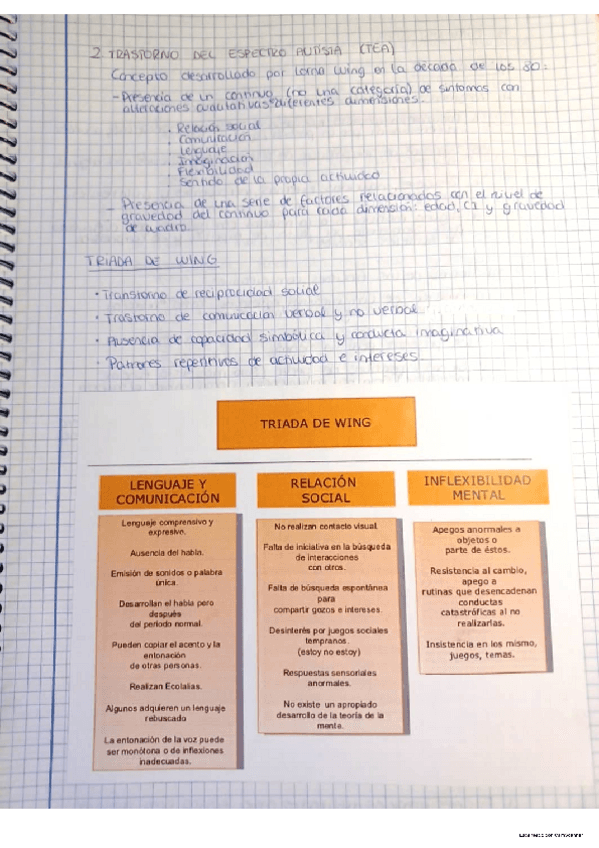 2. TRASTORNO DEL ESPECTRO AUTISTA (TEA)
Concepto desarrollado por Lorna Wing en la década de los 80:
- Presencia de un continuo (no una categoría) de síntomas con
alteraciones cualitativas diferentes dimensiones.
· Relación social
· Comunicación
· Lenguaje
· Imaginación
· Flexibilidad
· Sentido de la propia actividad
- Presencia de una serie de factores relacionados con el nivel de
gravedad del continuo para cada dimensión: edad, CI y gravedad
de cuadro.
TRIADA DE WING
· Transtorno de reciprocidad social
· Trastorno de comunicación verbal y no verbal
· Ausencia de capacidad simbólica y conducta imaginativa
· Patrones repetitivos de actividad e intereses.
TRIADA DE WING
LENGUAJE Y
COMUNICACIÓN
Lenguaje comprensivo y
expresivo.
Ausencia del habla.
Emisión de sonidos o palabra
única.
Desarrollan el habla pero
después
del período normal.
Pueden copiar el acento y la
entonación
de otras personas.
Realizan Ecolalias.
Algunos adquieren un lenguaje
rebuscado
La entonación de la voz puede
ser monótona o de inflexiones
inadecuadas.
RELACIÓN
SOCIAL
No realizan contacto visual.
Falta de iniciativa en la búsqueda
de interacciones
con otros.
Falta de búsqueda espontánea
para
compartir gozos e intereses.
Desinterés por juegos sociales
tempranos.
(estoy no estoy)
Respuestas sensoriales
anormales.
No existe un apropiado
desarrollo de la teoría de la
mente.
INFLEXIBILIDAD
MENTAL
Apegos anormales a
objetos o
parte de éstos.
Resistencia al cambio,
apego a
rutinas que desencadenan
conductas
catastróficas al no
realizarlas.
Insistencia en los mismo,
juegos, temas.